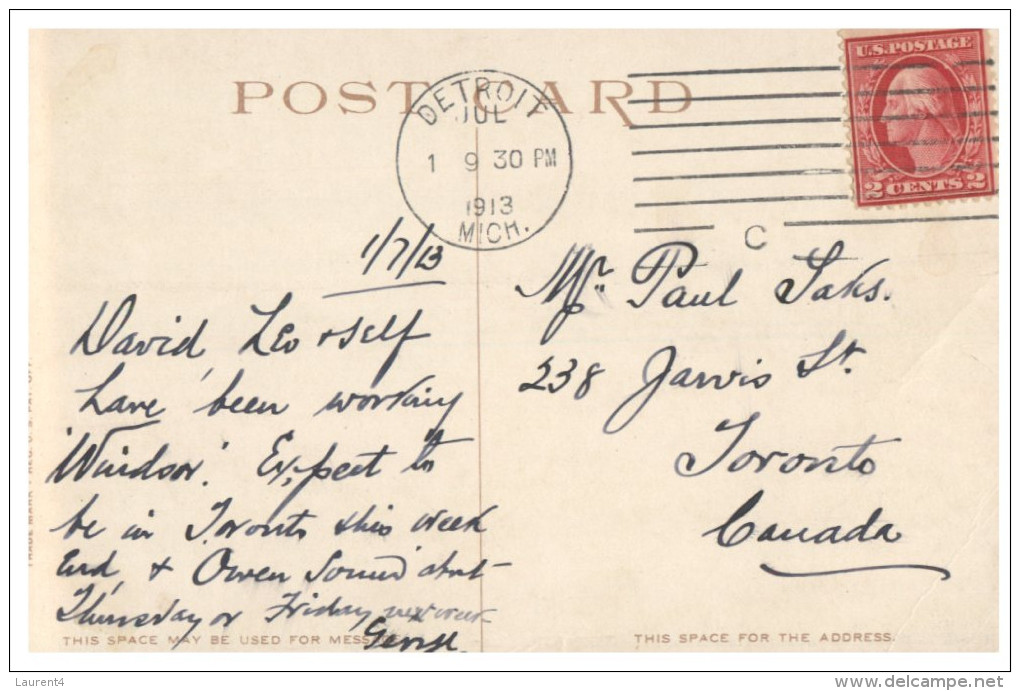 POST CARD
U.S. POSTAGE
2 CENTS 2
DETROIT
JUL
1 9 30 PM
1913
MICH.
C
1/7/13
David, Leo & self
have been working
'Windsor'. Expect to
be in Toronto this week
End, & Owen Sound abut
Thursday or Friday next week
George
Mr. Paul Saks.
238 Jarvis St.
Toronto
Canada
THIS SPACE MAY BE USED FOR MESSAGE
THIS SPACE FOR THE ADDRESS.
Laurent4
www.delcampe.net